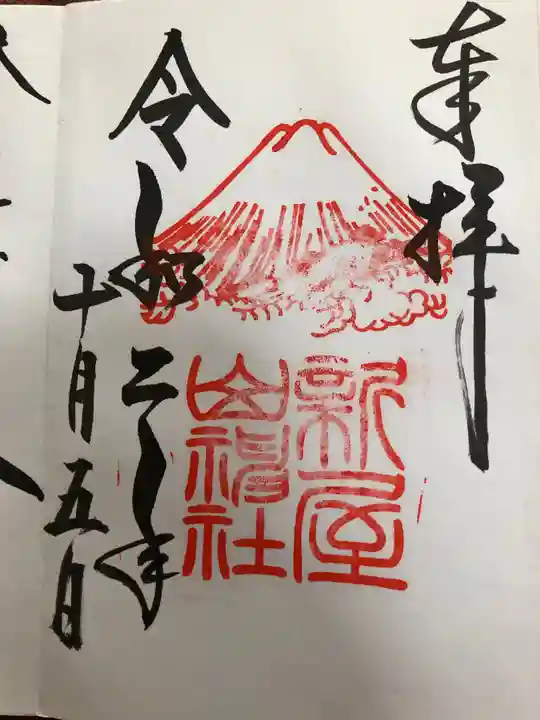 奉拝
新屋
山神社
令和二年
十月五日